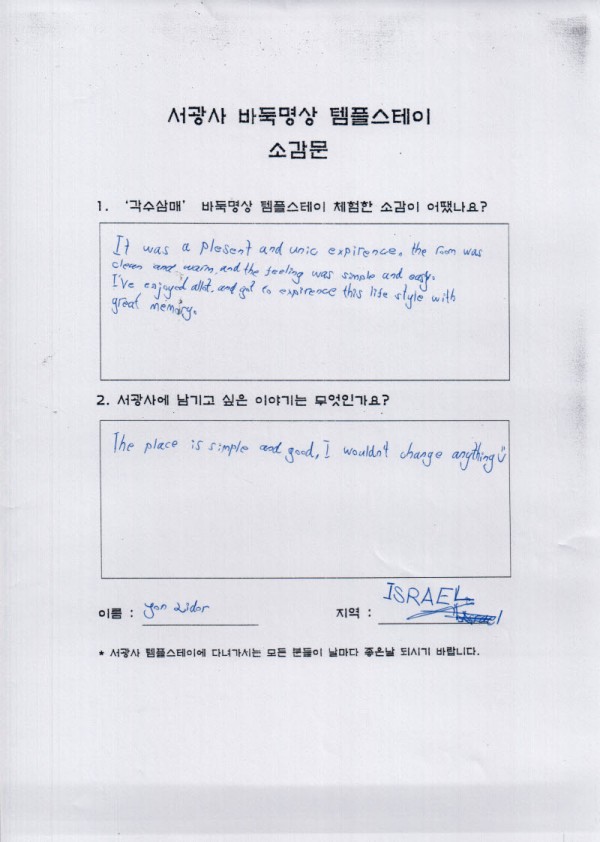 서광사 바둑명상 템플스테이
소감문
1. ‘각수삼매’ 바둑명상 템플스테이 체험한 소감이 어땠나요?
It was a plesent and unic expirence. the room was
clean and warm, and the feeling was simple and easy.
I've enjoyed allot, and got to expirence this life style with
great memory.
2. 서광사에 남기고 싶은 이야기는 무엇인가요?
The place is simple and good, I wouldn't change anything
이름 : Yon Lidor
지역 : ISRAEL
* 서광사 템플스테이에 다녀가시는 모든 분들이 날마다 좋은날 되시기 바랍니다.